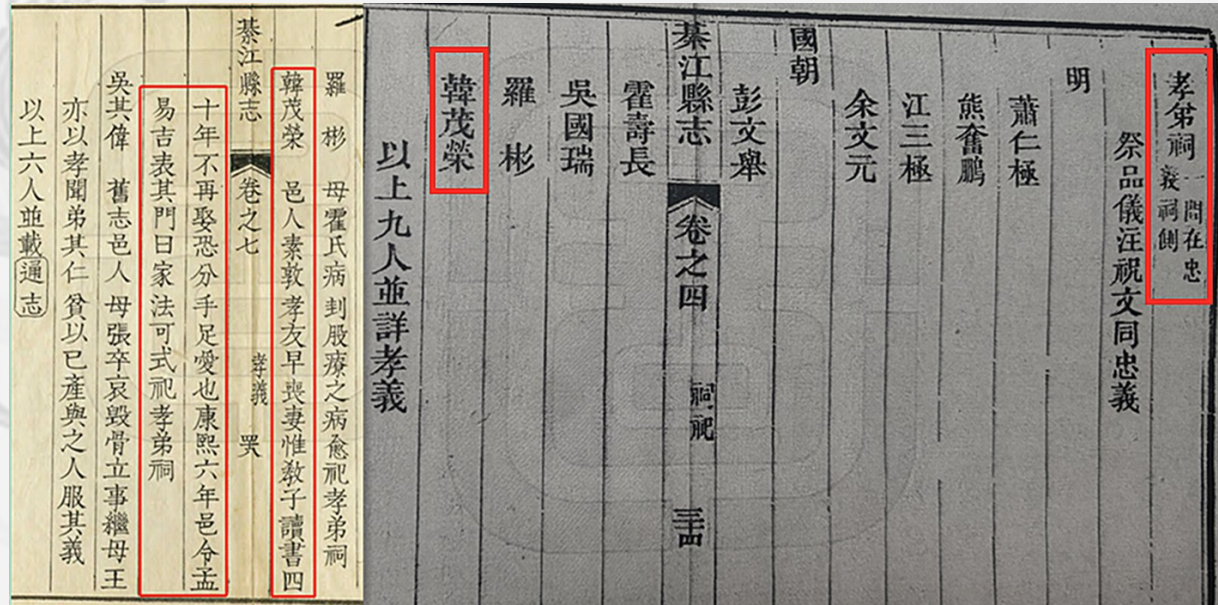 孝弟祠 一間在忠
義祠側
祭品儀注祝文同忠義
明
蕭仁極
熊奮鵬
江三極
余文元
國朝
彭文舉
綦江縣志 卷之四 祠祀 三十四
霍壽長
吳國瑞
羅彬
韓茂榮
以上九人並詳孝義
羅彬 母霍氏病刲股療之病愈祀孝弟祠
韓茂榮 邑人素敦孝友早喪妻惟敎子讀書四
綦江縣志 卷之七 孝義
十年不再娶恐分手足愛也康熙六年邑令孟
易吉表其門曰家法可式祀孝弟祠
吳其偉 舊志邑人母張卒哀毀骨立事繼母王
亦以孝聞弟其仁貧以已產與之人服其義
以上六人並載通志